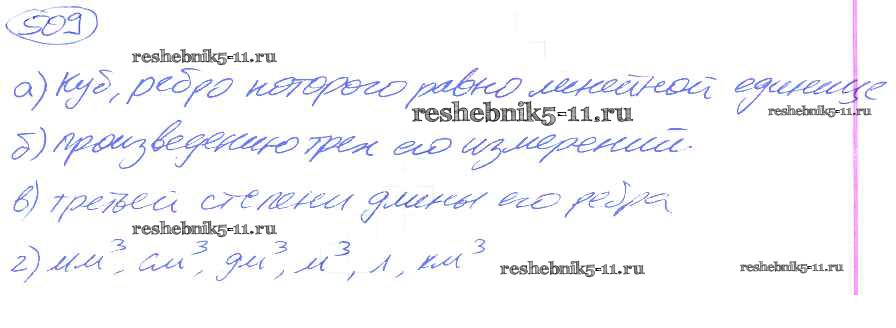 509
reshebnik5-11.ru
а) Куб, ребро которого равно линейной единице
reshebnik5-11.ru
б) произведению трех его измерений.
в) третьей степени длины его ребра
reshebnik5-11.ru
г) мм³, см³, дм³, м³, л, км³
reshebnik5-11.ru reshebnik5-11.ru